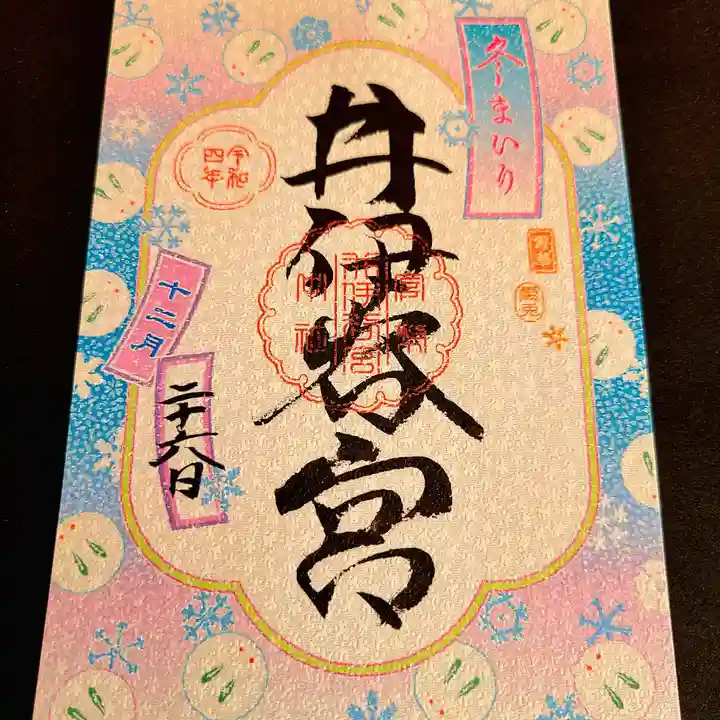 冬まいり
井伊谷宮
令和
四年
十二月
二十六日